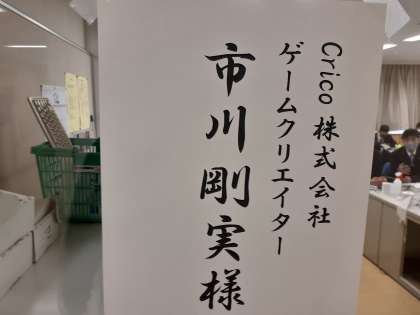 Crico 株式会社
ゲームクリエイター
市川剛実様